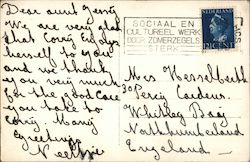 Dear aunt Jenny
We are very glad
that Corry enjoys
herself to you
and we thank
you very much
for the good care
you take to
Corry. Many
greetings
Neeltje
SOCIAAL EN
CULTUREEL WERK
DOOR ZOMERZEGELS
STERK
NEDERLAND
12½ CENT
Mrs Hesselberth
30 Percy Gardens
Whitley Bay
Northumberland
England